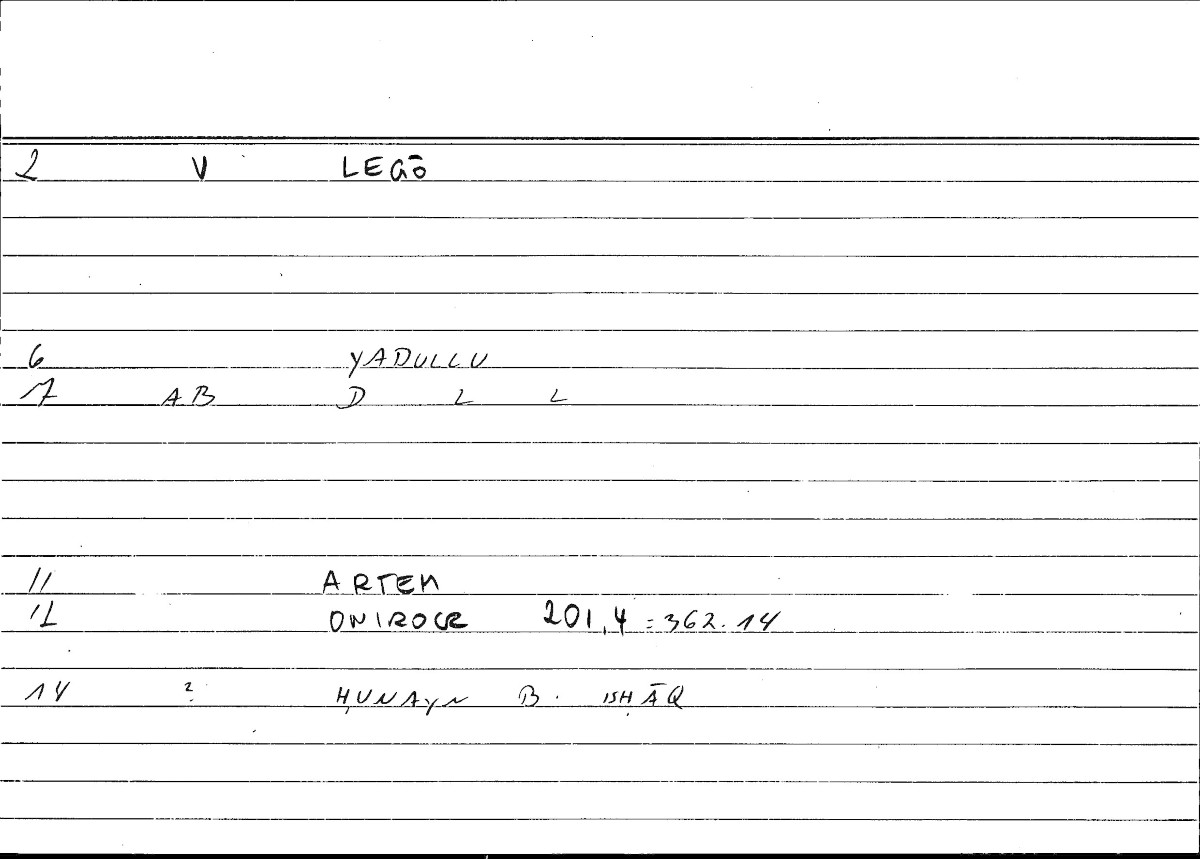 2 V LEGŌ
6 YADULLU
7 AB D L L
11 ARTEM
12 ONIROCR 201,4 = 362.14
14 ? ḤUNAYN B. ISḤĀQ